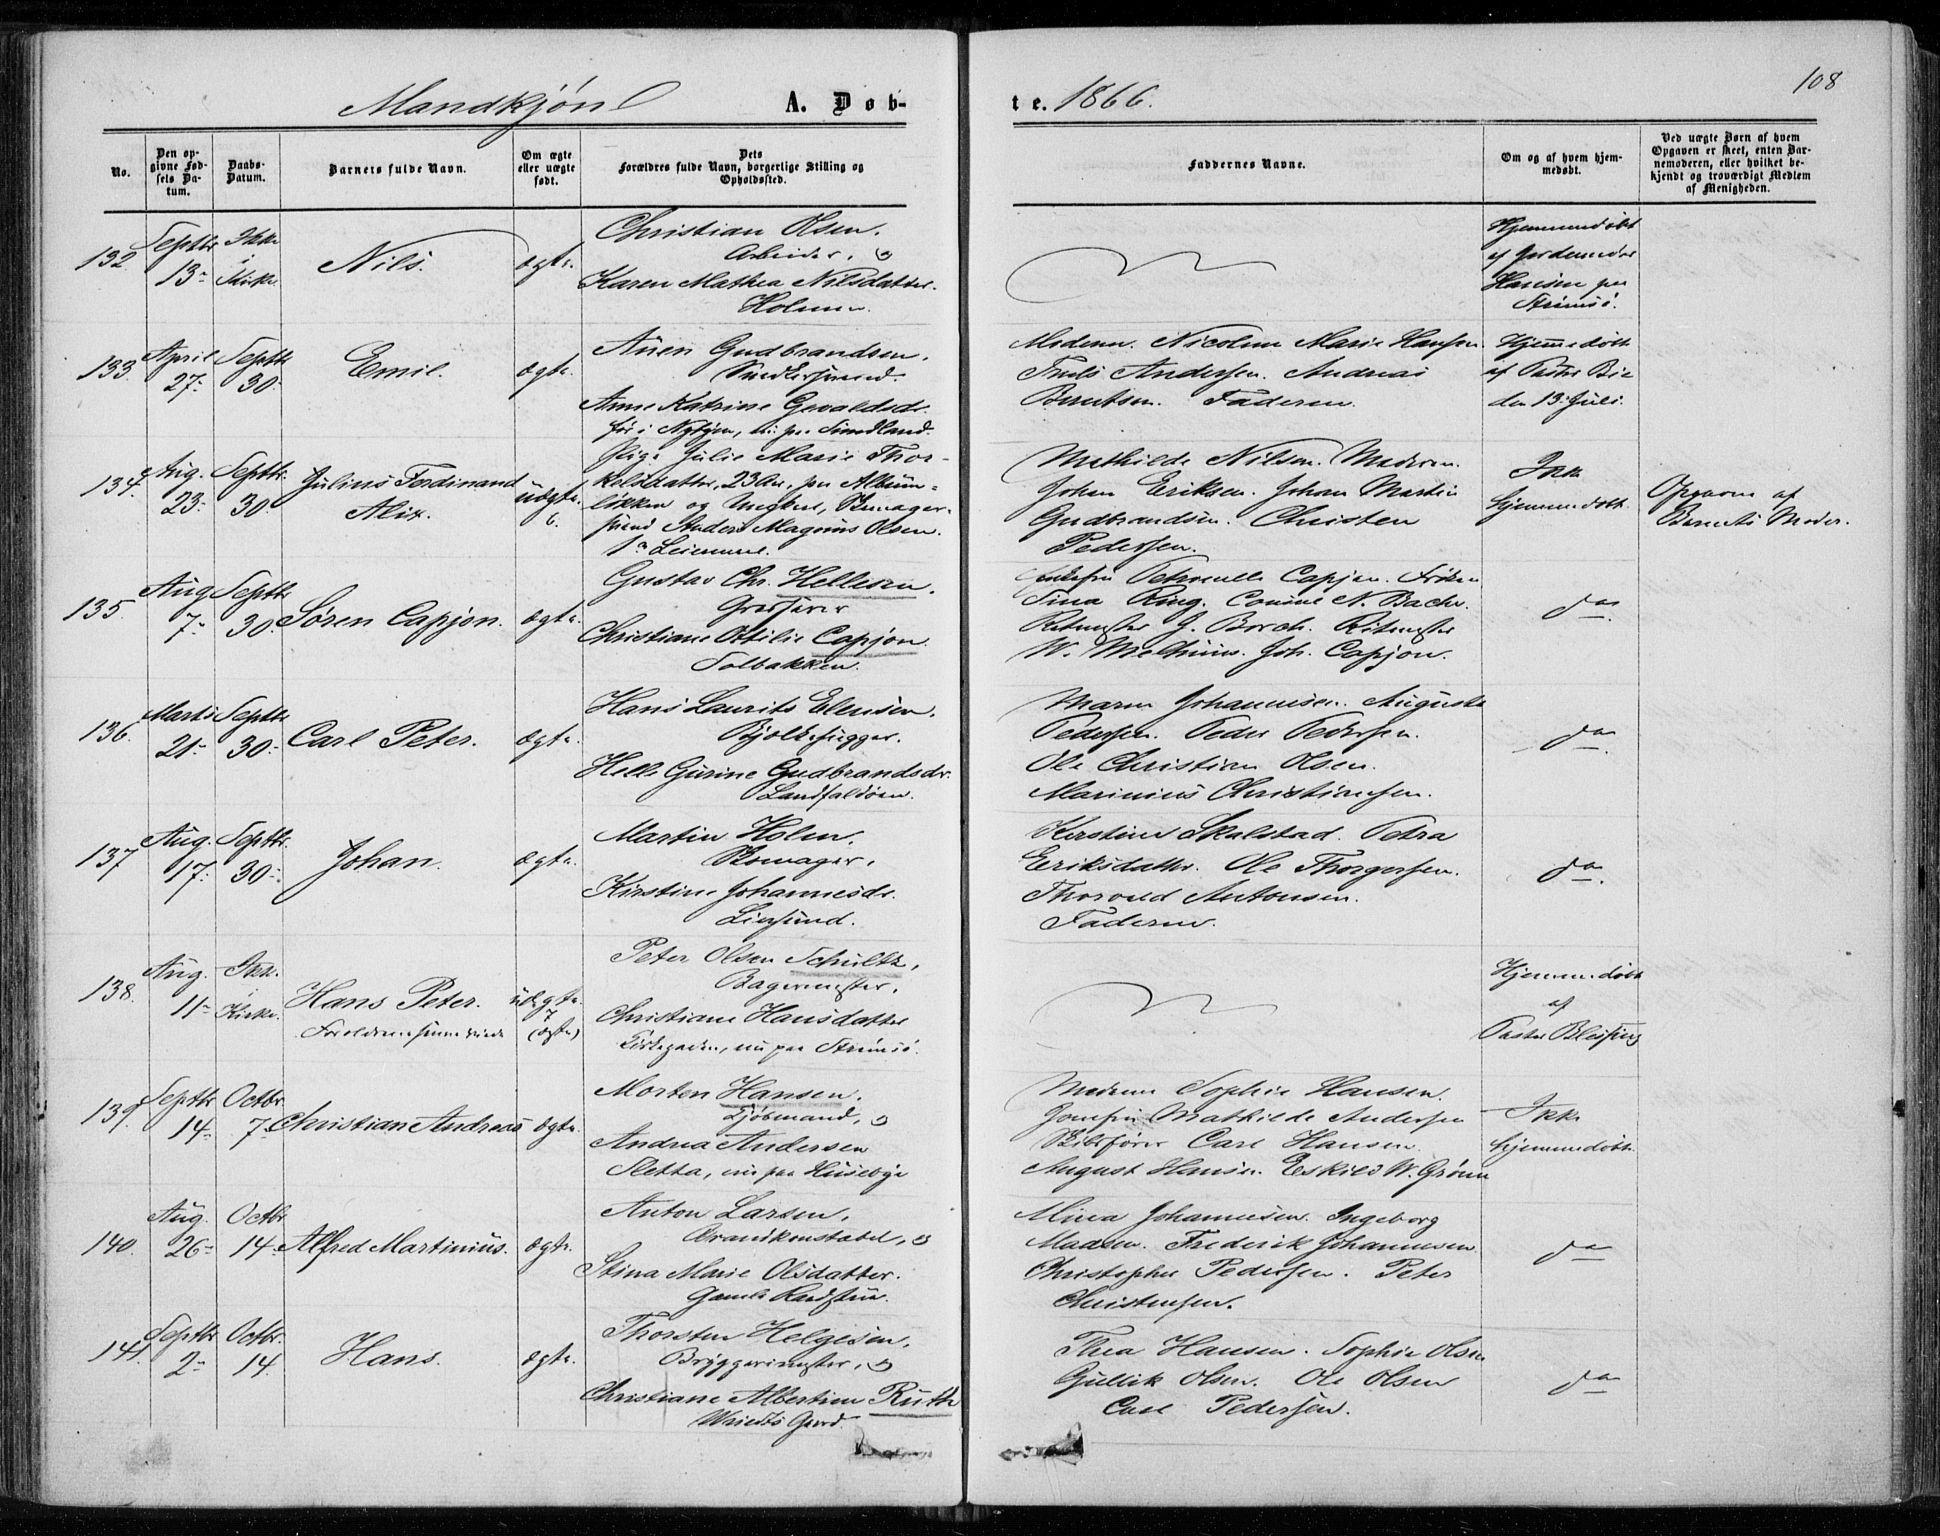 108
Mandkjøn A. Døb-
te. 1866.
No.
Den op-
givne Fød-
sels Da-
tum.
Daabs-
Datum.
Barnets fulde Navn.
Om ægte
eller uægte
født.
Dets
Forældres fulde Navn, borgerlige Stilling og
Opholdssted.
Faddernes Navne.
Om og af hvem hjem-
medøbt.
Ved uægte Børn af hvem
Opgaven er skeet, enten Bar-
nemoderen, eller hvilket be-
kjendt og troværdigt Medlem
af Menigheden.
132
Septbr
13
Ikke
i
Kirke
Nils.
ægte.
Christian Olsen.
Arbeider,
Karen Mathea Nilsdatter.
Holmen.
Hjemmedøbt
af Jordemoder
Hansen paa
Strømsø.
133.
April
27
Septbr
30
Emil.
ægte.
Anen Gudbrandsen.
Snedkersvend.
Anne Katrine
før i Nybyen, nu paa Sundland.
Moderen. Nicoline Marie Hansen
Truls Andersen. Andreas
Berntsen. Faderen.
Hjemmedøbt
af Pastor Bie
den 13 Juli.
134.
Aug.
23
Septbr.
30
Julius Ferdinand
Alix.
uægte.
6.
Pige Julie Marie Thor-
kelsdatter, 23 Aar, paa Album-
løkken og Ungkarl, Skomager-
svend Anders Magnus Olsen.
1a Leiermaal.
Mathilde Nilsen. Moderen.
Johan Eriksen. Johan Martin
Gudbrandsen. Christen
Pedersen.
Ikke
hjemmedøbt.
Opgaven af
Barnets Moder.
135.
Aug
7
Septbr
30
Søren Capjon.
ægte.
Gustav Chr. Hellesen.
Christiane Ottilie Capjon.
Solbakken.
Petronelle Capjon. Frøken
Sina Ring. N. Bache.
Ritmester J. Borch. Ritmester
W. Joh. Capjon.
do.
136.
Marts
21
Septbr
30
Carl Peter.
ægte.
Hans Laurits Elensen.
Bjelkehugger.
Helle Gurine Gudbrandsdr.
Landfaldøen.
Maren Johannesen. Auguste
Pedersen. Peder Pedersen.
Ole Christian Olsen.
Marinius Christiansen.
do.
137
Aug.
17
Septbr.
30
Johan.
ægte.
Martin Holm.
Skomager.
Kirstine Johannesdr.
Kirstine Skalstad. Petra
Eriksdatter. Ole Thorgersen.
Thorvald Antonsen.
Faderen.
do.
138.
Aug.
11
Ikke
i
Kirke.
Hans Peter.
Forældrene siden viede
uægte.
7
(ægte)
Peter Olsen Schultz,
Bagermester.
Christiane Hansdatter
Kirkegaden, nu paa Strømsø.
Hjemmedøbt
af
Pastor Blessing
139.
Septbr
14
Octbr.
7
Christian Andreas
ægte.
Morten Hansen.
Kjøbmand,
Andrea Andersen
Sletta, nu paa Husebye
Moderen Sophie Hansen.
Jomfru Mathilde Andersen
Skibsfører Carl Hansen.
August Hansen. Eskild W. Grønn
Ikke
hjemmedøbt.
140.
Aug.
26
Octbr
14
Alfred Martinius.
ægte.
Anton Larsen.
Brandkonstabel,
Stina Marie Olsdatter.
Gamle
Mina Johannesen. Ingeborg
Madsen. Frederik Johannesen
Christopher Pedersen. Peter
Christensen.
do
141
Septbr
2
Octbr.
14.
Hans.
ægte.
Thorsten Helgesen.
Bryggerimester,
Christiane Albertine Ruth
Wrields Gaard.
Thea Hansen. Sophie Olsen
Gullik Olsen. Ole Olsen
Carl Pedersen.
do